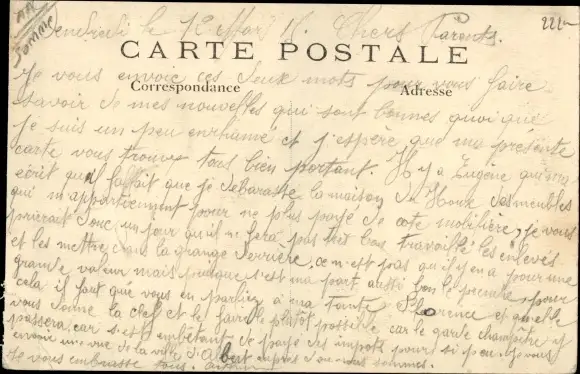 Somme
221
Vendredi le 12 Mars 15. Chers Parents.
CARTE POSTALE
Je vous envoie ces deux mots pour vous faire
Correspondance Adresse
savoir de mes nouvelles qui sont bonnes quoi que
je suis un peu enrhumé et j'espère que ma présente
carte vous trouve tous bien portant. Il y a Eugène qui m'a
écrit qu'il fallait que je débarasse la maison du des meubles
qui m'appartiennent pour ne plus payé de cote mobilière, je vous
prierait donc un jour qu'il ne fera pas tres bon travaillé les enlevés
et les mettre dans la grange derrière, ce n'est pas qu'il y en a pour une
grande valeur mais puisque s'est ma part, aussi bon le prendre, pour
cela il faut que vous en parliez à ma tante Florence et quelle
vous donne la clef et le faire le plutôt possible car le garde champêtre y
passera, car s'est embêtant de payé des impots pour si peu. Je vous
envoie une vue de la ville d'Albert auprès d'ou nous sommes.
Je vous embrasse tous.